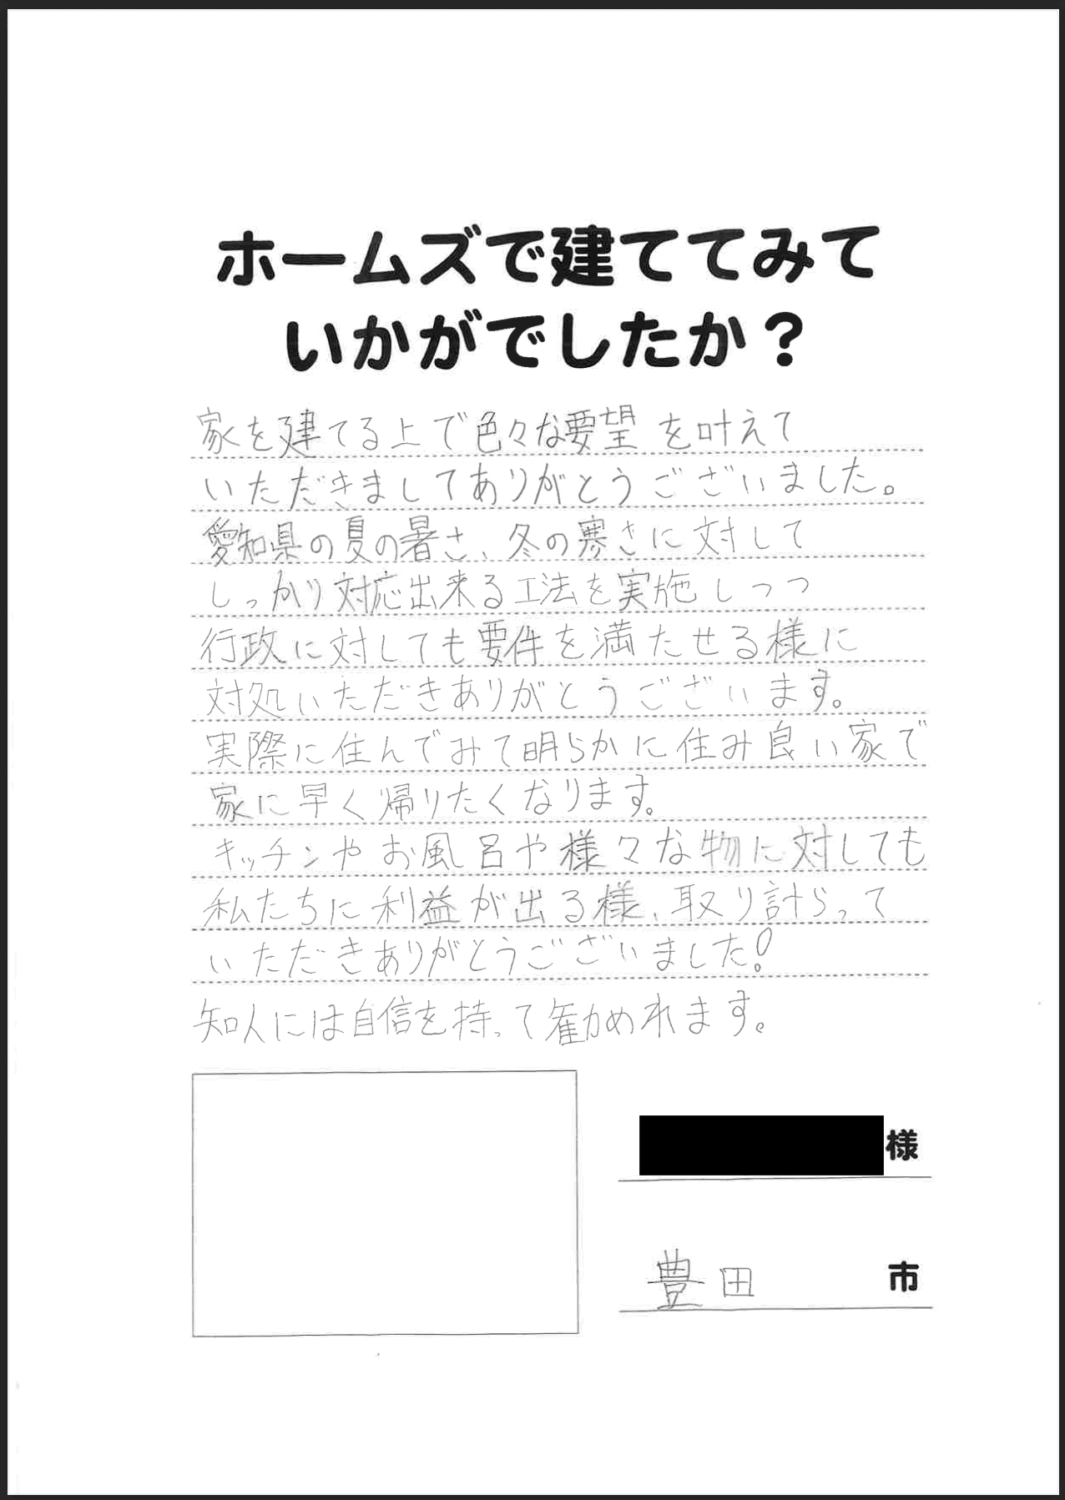 ホームズで建ててみて
いかがでしたか？
家を建てる上で色々な要望を叶えて
いただきましてありがとうございました。
愛知県の夏の暑さ、冬の寒さに対して
しっかり対応出来る工法を実施しつつ
行政に対しても要件を満たせる様に
対処いただきありがとうございます。
実際に住んでみて明らかに住み良い家で
家に早く帰りたくなります。
キッチンやお風呂や様々な物に対しても
私たちに利益が出る様、取り計らって
いただきありがとうございました!
知人には自信を持って勧められます。
様
豊田 市